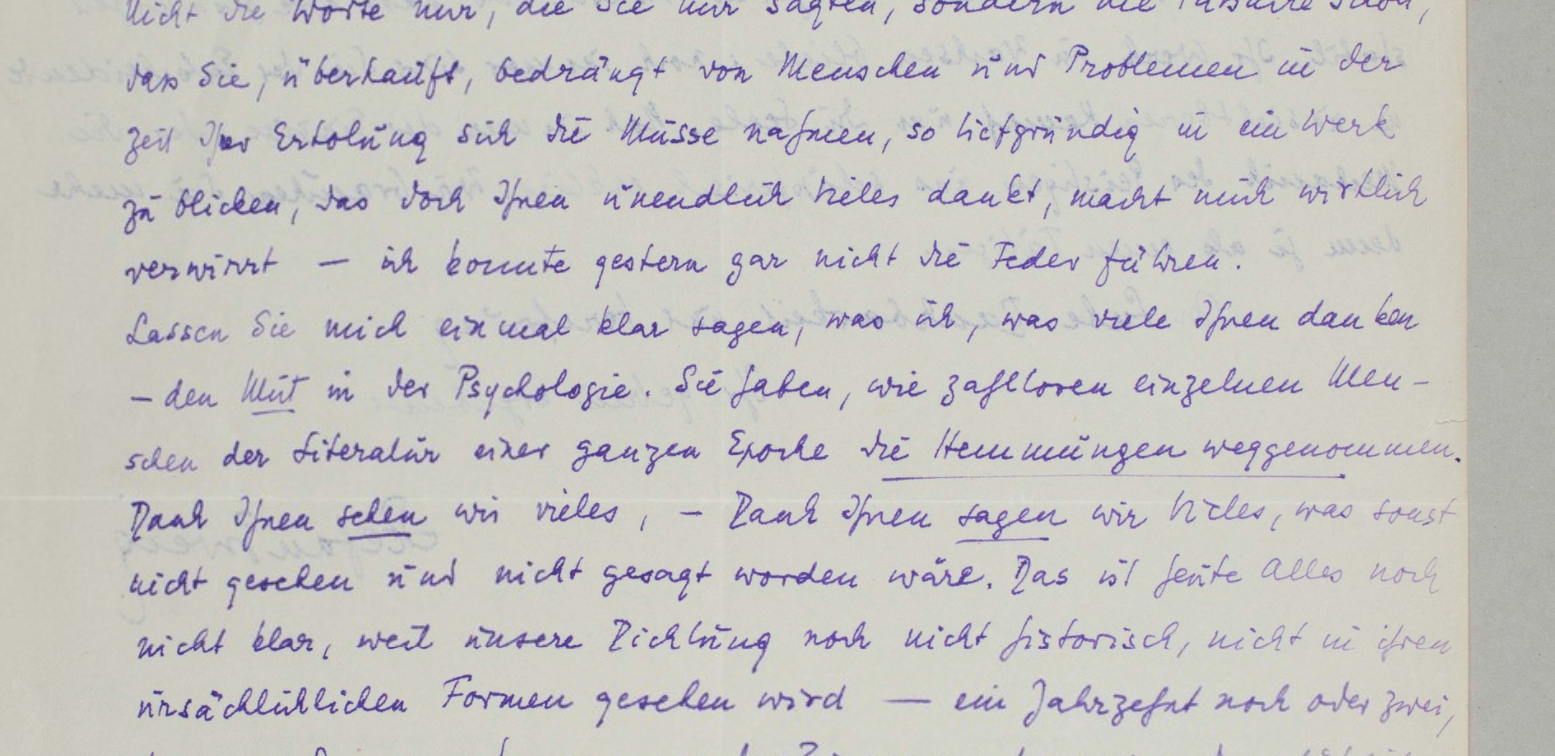 Nicht die Worte nur, die Sie mir sagten, sondern die Tatsache schon,
dass Sie, überhäuft, bedrängt von Menschen und Problemen in der
Zeit Ihrer Erholung sich die Musse nahmen, so tiefgründig in ein Werk
zu blicken, das doch Ihnen unendlich vieles dankt, macht mich wirklich
verwirrt — ich konnte gestern gar nicht die Feder führen.
Lassen Sie mich einmal klar sagen, was ich, was viele Ihnen danken
– den Mut in der Psychologie. Sie haben, wie zahllosen einzelnen Men-
schen der Literatur einer ganzen Epoche die Hemmungen weggenommen.
Dank Ihnen sehen wir vieles, – Dank Ihnen sagen wir Vieles, was sonst
nicht gesehen und nicht gesagt worden wäre. Das ist heute Alles noch
nicht klar, weil unsere Dichtung noch nicht historisch, nicht in ihren
ursächlichlichen Formen gesehen wird — ein Jahrzehnt noch oder zwei,